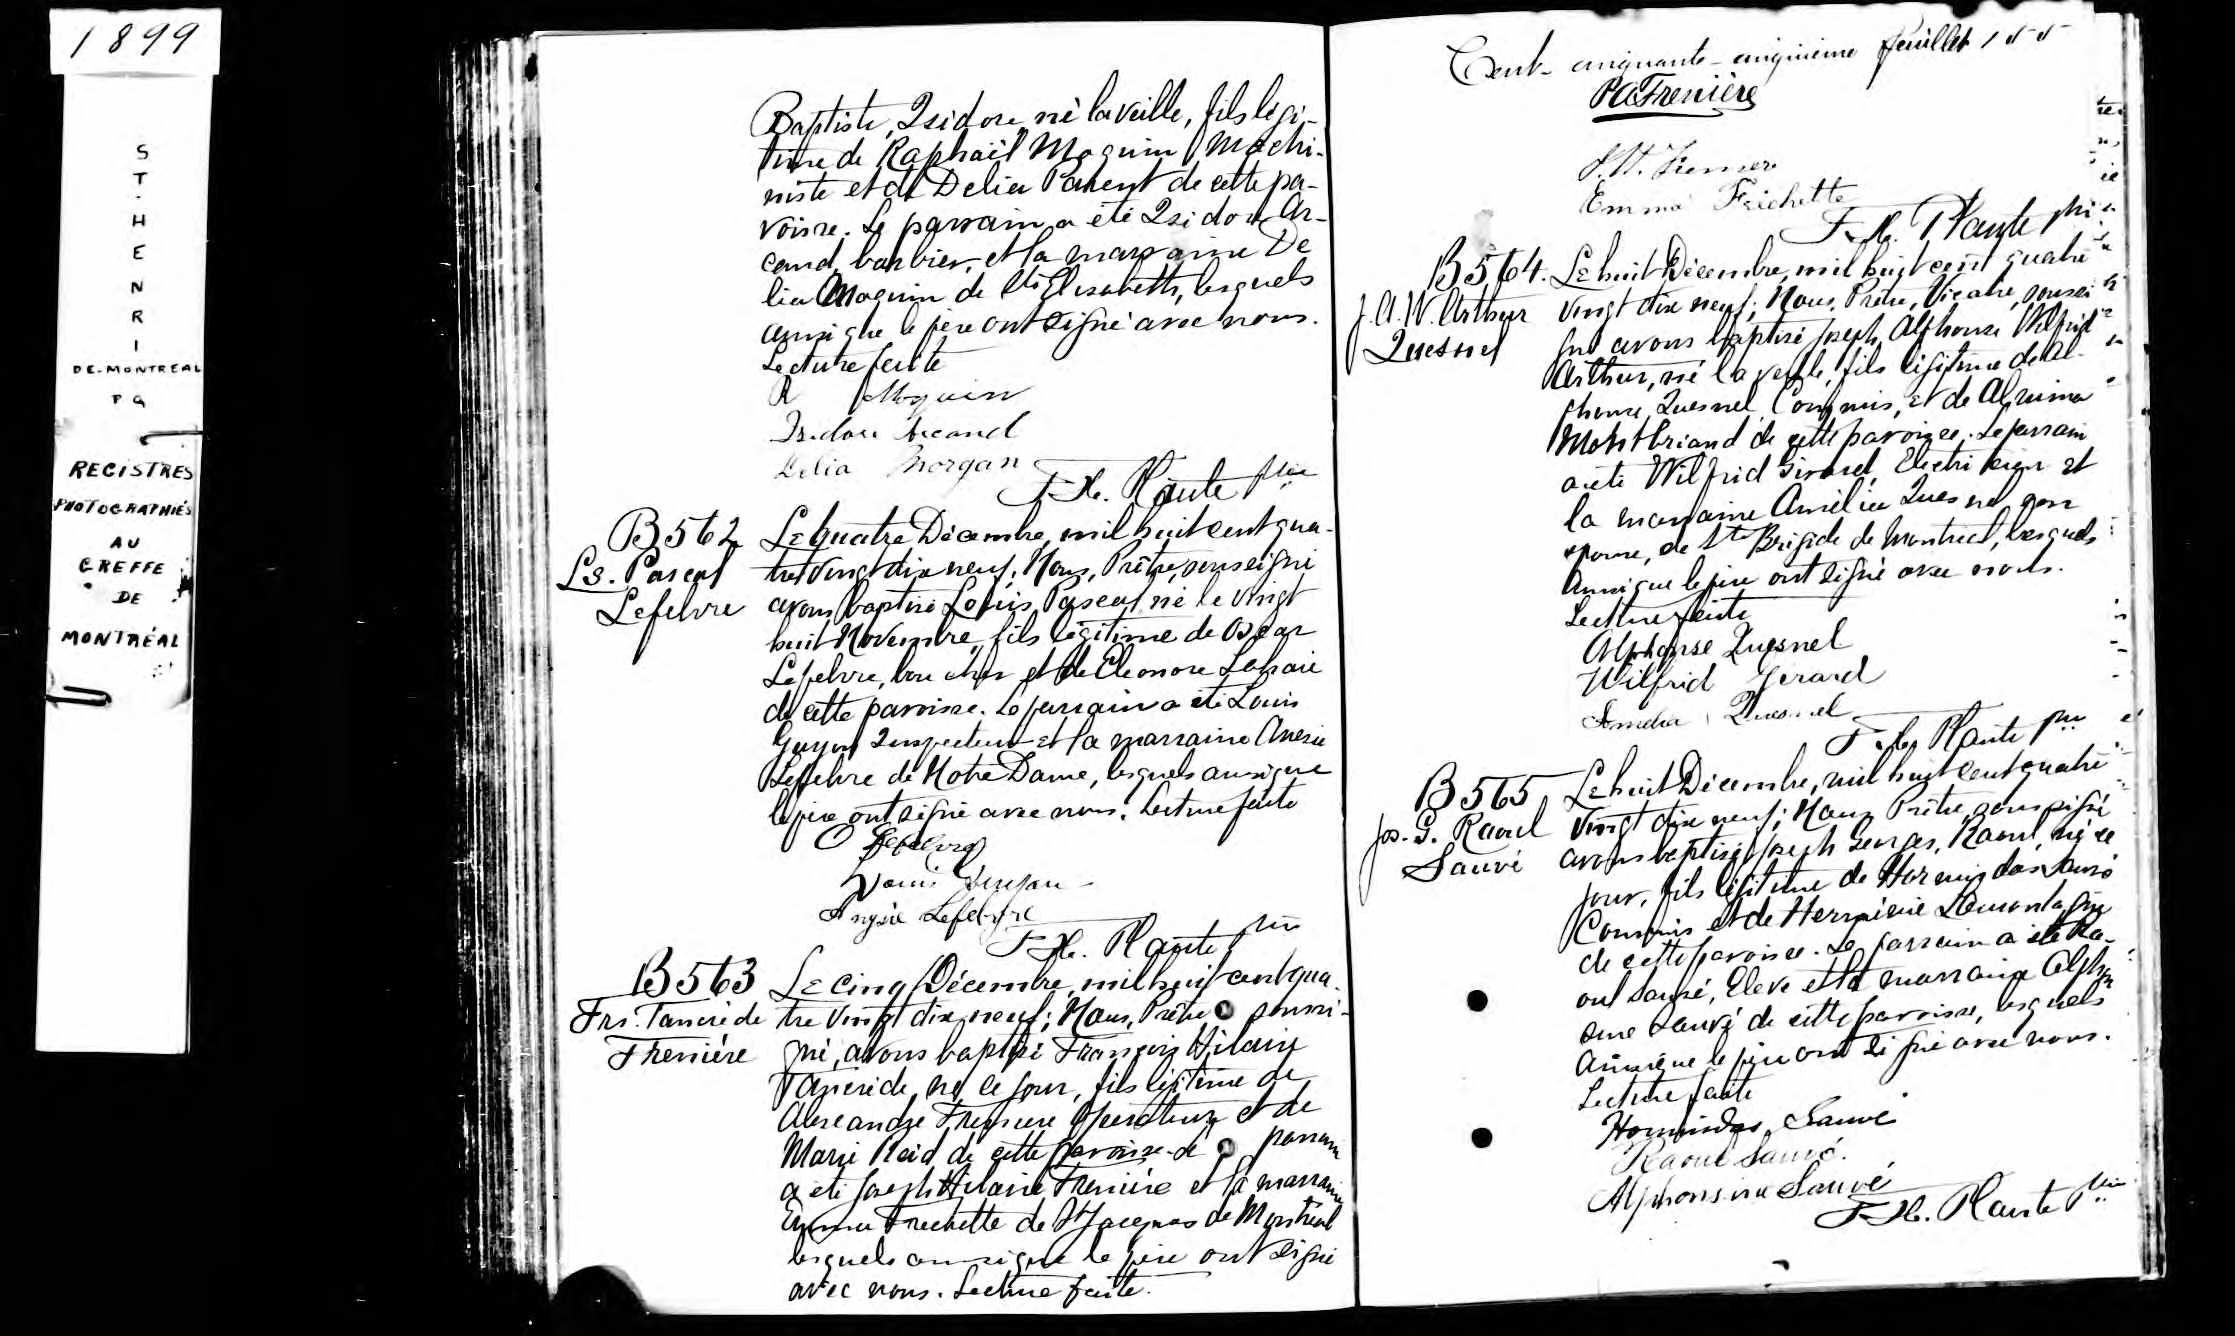 1899
ST. HENRI
DE-MONTREAL
P Q
REGISTRES
PHOTOGRAPHIÉS
AU
GREFFE
DE
MONTRÉAL
Baptiste, Isidore, né la veille, fils légi-
time de Raphaël Moquin Machi-
niste et de Delia Parent de cette pa-
roisse. Le parrain a été Isidore Ar-
cand, barbier, et la marraine De
lia Moquin de Ste Elisabeth, lesquels
ainsi que le père ont signé avec nous.
Lecture faite
R Moquin
Isidore Arcand
Delia Morgan
F. X. Plante ptre
B 562
Ls. Pascal
Lefebvre
Le quatre Décembre, mil huit cent qua-
tre vingt dix neuf; Nous, Prêtre, soussigné
avons baptisé Louis Pascal né le vingt
huit Novembre, fils légitime de Oscar
Lefebvre, boucher et de Eleonore Lahaie
de cette paroisse. Le parrain a été Louis
Guyon Inspecteur et la marraine Anesie
Lefebvre de Notre Dame, lesquels ainsi que
le père ont signé avec nous. Lecture faite
O Lefebvre
Louis
Anysie Lefebvre
F. X. Plante ptre
B 563
Frs. Tancride
Frenière
Le cinq Décembre, mil huit cent qua-
tre vingt dix neuf; Nous, Prêtre soussi-
gné, avons baptisé François Hilaire
Tancride, né ce jour, fils légitime de
Alexandre Frenière Opérateur et de
Marie Reid de cette paroisse. Le parrain
a été Joseph Hilaire Frenière et la marraine
Emma Frechette de St Jacques de Montréal
lesquels ainsi que le père ont signé
avec nous. Lecture faite.
Cent-cinquante-cinquième feuillet 155
PA Frenière
Emma Frichette
F. X. Plante ptre
B 564.
J. A. W. Arthur
Quesnel
Le huit Décembre, mil huit cent quatre
vingt dix neuf; Nous, Prêtre, Vicaire, soussi
gné avons baptisé Joseph Alphonse Wilfrid
Arthur, né la veille, fils légitime de Al-
phonse Quesnel, Commis, et de Alxima
Montbriand de cette paroisse. Le parrain
a été Wilfrid Girard, Electricien et
la marraine Amélia Quesnel son
épouse, de Ste Brigide de Montréal, lesquels
ainsi que le père ont signé avec nous.
Lecture faite
Alphonse Quesnel
Wilfrid Gerard
Amelia Quesnel
F. X. Plante ptre
B 565
Jos. G. Raoul
Sauvé
Le huit Décembre, mil huit cent quatre
vingt dix neuf; Nous Prêtre, soussigné
avons baptisé Joseph Georges, Raoul, né ce
jour, fils légitime de Hormisdas Sauvé
Commis et de Herminie Lamontagne
de cette paroisse. Le parrain a été Ra-
oul Sauvé, Elève et la marraine Alphon
sine Sauvé de cette paroisse, lesquels
ainsi que le père ont signé avec nous.
Lecture faite
Hormisdas Sauvé
Raoul Sauvé.
Alphonsine Sauvé
F. X. Plante ptre